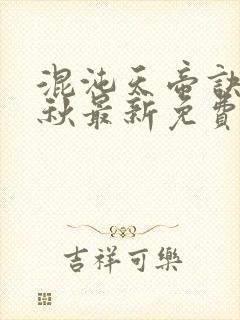 混沌天帝訣
秋最新免費
吉祥可樂